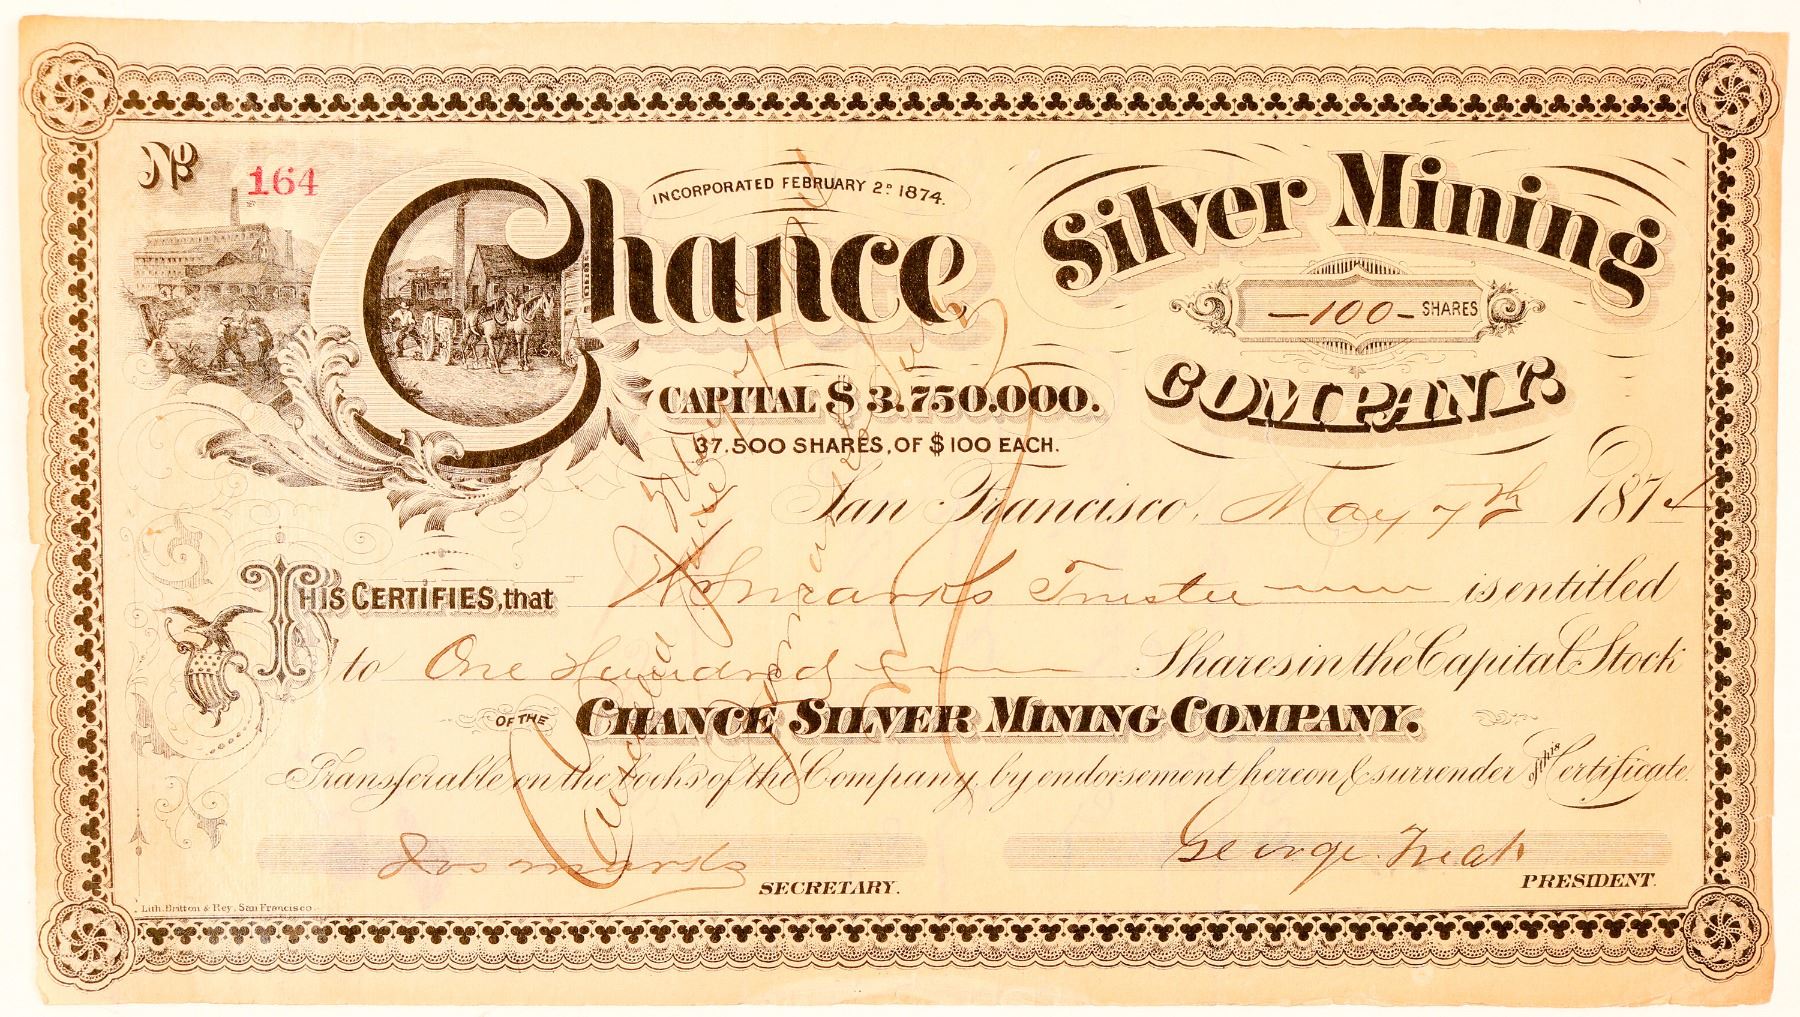 No 164
INCORPORATED FEBRUARY 2D 1874.
Chance Silver Mining
—100— SHARES
COMPANY.
CAPITAL $ 3.750.000.
37.500 SHARES, OF $100 EACH.
San Francisco, May 7th 1874
THIS CERTIFIES, that Trustee is entitled
to One Hundred Shares in the Capital Stock
OF THE CHANCE SILVER MINING COMPANY.
Transferable on the books of the Company, by endorsement hereon & surrender of this Certificate.
Jos Marks SECRETARY.
George PRESIDENT.
Lith. Britton & Rey, San Francisco.
Cancelled